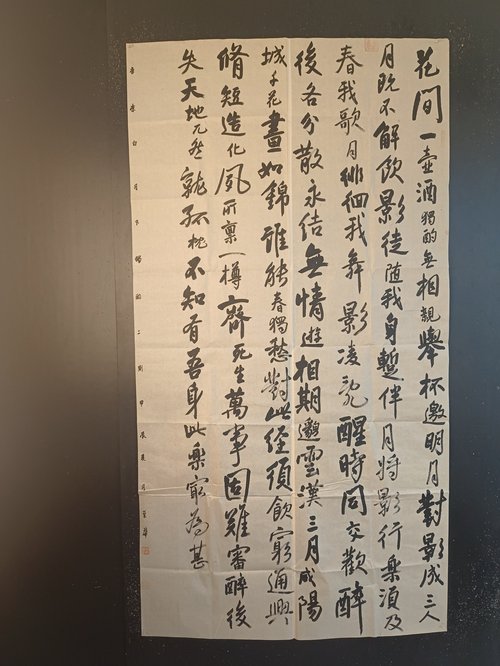 花間一壺酒獨酌無相親舉杯邀明月對影成三人
月既不解飲影徒随我身暫伴月將影行樂須及
春我歌月徘徊我舞影凌亂醒時同交歡醉
後各分散永結無情遊相期邈雲漢三月咸陽
城千花晝如錦誰能春獨愁對此徑須飲窮通與
脩短造化夙所稟一樽齊死生萬事固難審醉後
失天地兀然就孤枕不知有吾身此樂寂為甚
李白月下獨酌二則甲辰夏月